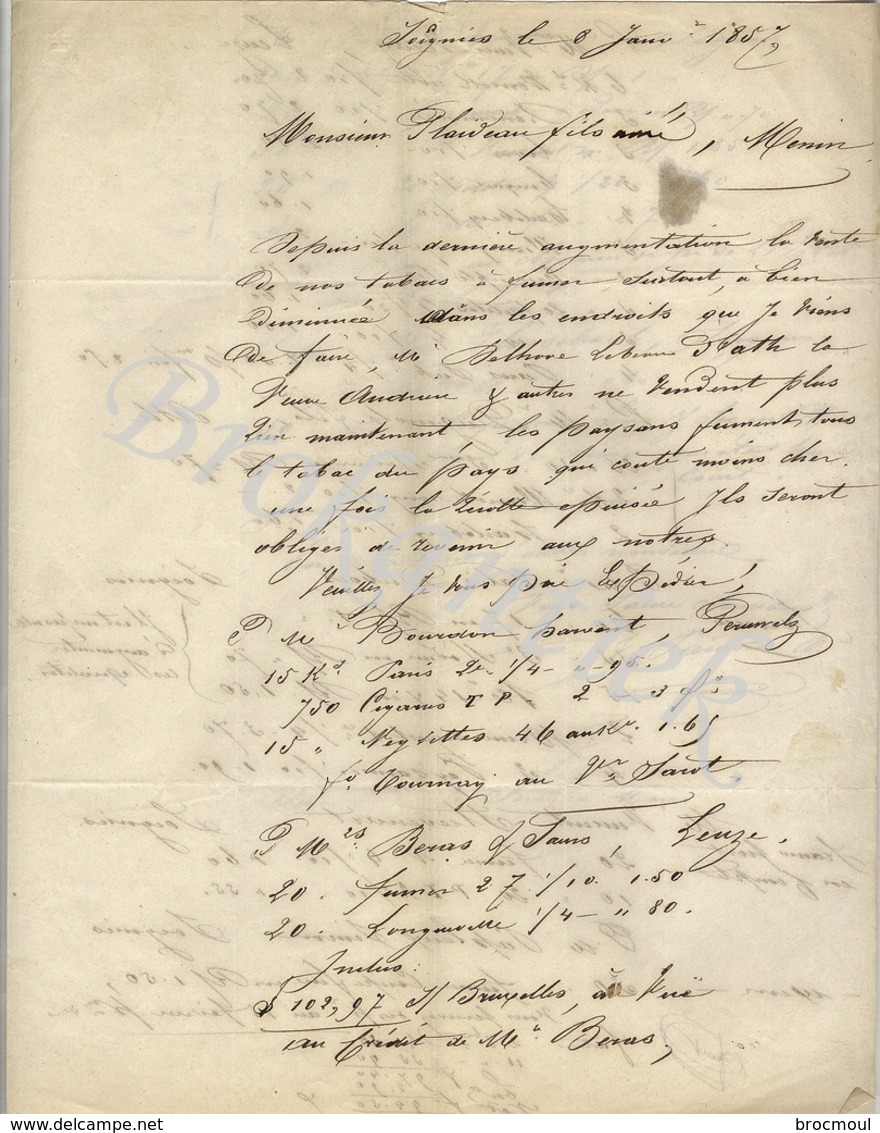 Soignies le 8 Janv. 1857
Monsieur Plaideau fils ainé, Menin
Depuis la dernière augmentation la vente
de nos tabacs à fumer surtout, à bien
diminuée dans les endroits que Je viens
de faire, Mr Delhove d'ath la
Veuve Andrieu & autres ne vendent plus
Rien maintenant, les paysans fument tous
le tabac du pays qui coute moins cher.
une fois la Récolte épuisée Ils seront
obligés de revenir aux notres.
Veuillez Je vous prie Expédier !
P Mr Bourdon, Peruwelz
15 Ks. Paris 2e 1/4 - " - 95.
750 Cigares T P - 2 - 3 fs
15 " 46 au Kr. 1.65
fo. Tournay au
P Mrs. Beras & Tans, Leuze,
20. fumer 27. 1/10. 1.50
20. Longueville 1/4 - " 80.
Inclus:
f 102,97 S/ Bruxelles, à Vue
au Crédit de Mr Beras,
Brokantiek
delcampe.net
brocmoul